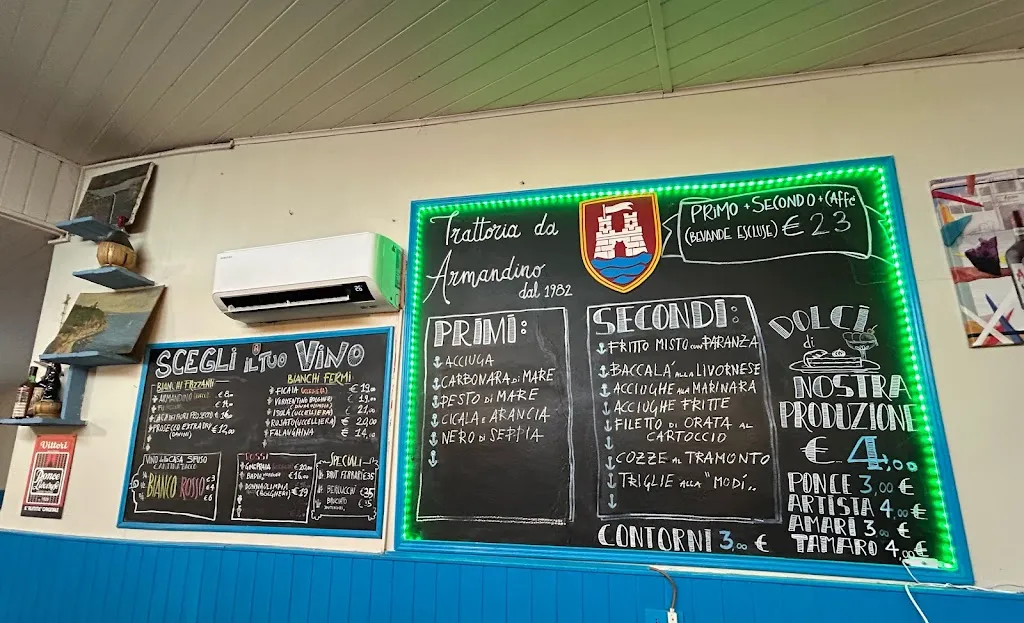 Trattoria da
Armandino
dal 1982
PRIMO + SECONDO + CAFFE
(BEVANDE ESCLUSE) € 23
PRIMI:
ACCIUGA
CARBONARA DI MARE
PESTO DI MARE
CICALA E ARANCIA
NERO DI SEPPIA
SECONDI:
FRITTO MISTO con PARANZA
BACCALA' ALLA LIVORNESE
ACCIUGHE ALLA MARINARA
ACCIUGHE FRITTE
FILETTO DI ORATA AL
CARTOCCIO
COZZE AL TRAMONTO
TRIGLIE ALLA "MODI..
CONTORNI 3,00 €
DOLCI
di
NOSTRA
PRODUZIONE
€ 4,00
PONCE 3,00 €
ARTISTA 4,00 €
AMARI 3,00 €
TAMARO 4,00 €
SCEGLI IL TUO VINO
BIANCHI FRIZZANTI
ARMANDINO
PROSECCO EXTRA DRY € 12,00
BIANCHI FERMI
FICAIA € 19,00
VERMENTINO BOLGHERI € 19,00
ISOLA (UCCELLIERA) € 21,00
ROSATO (UCCELLIERA) € 20,00
FALANGHINA € 14,00
VINO DELLA CASA SFUSO
BIANCO ROSSO
ROSSI
DONNAOLIMPIA
(BOLGHERI) € 29
SPECIALI
FERRARI € 35
BERLUCCHI € 35
Vittori
Ponce